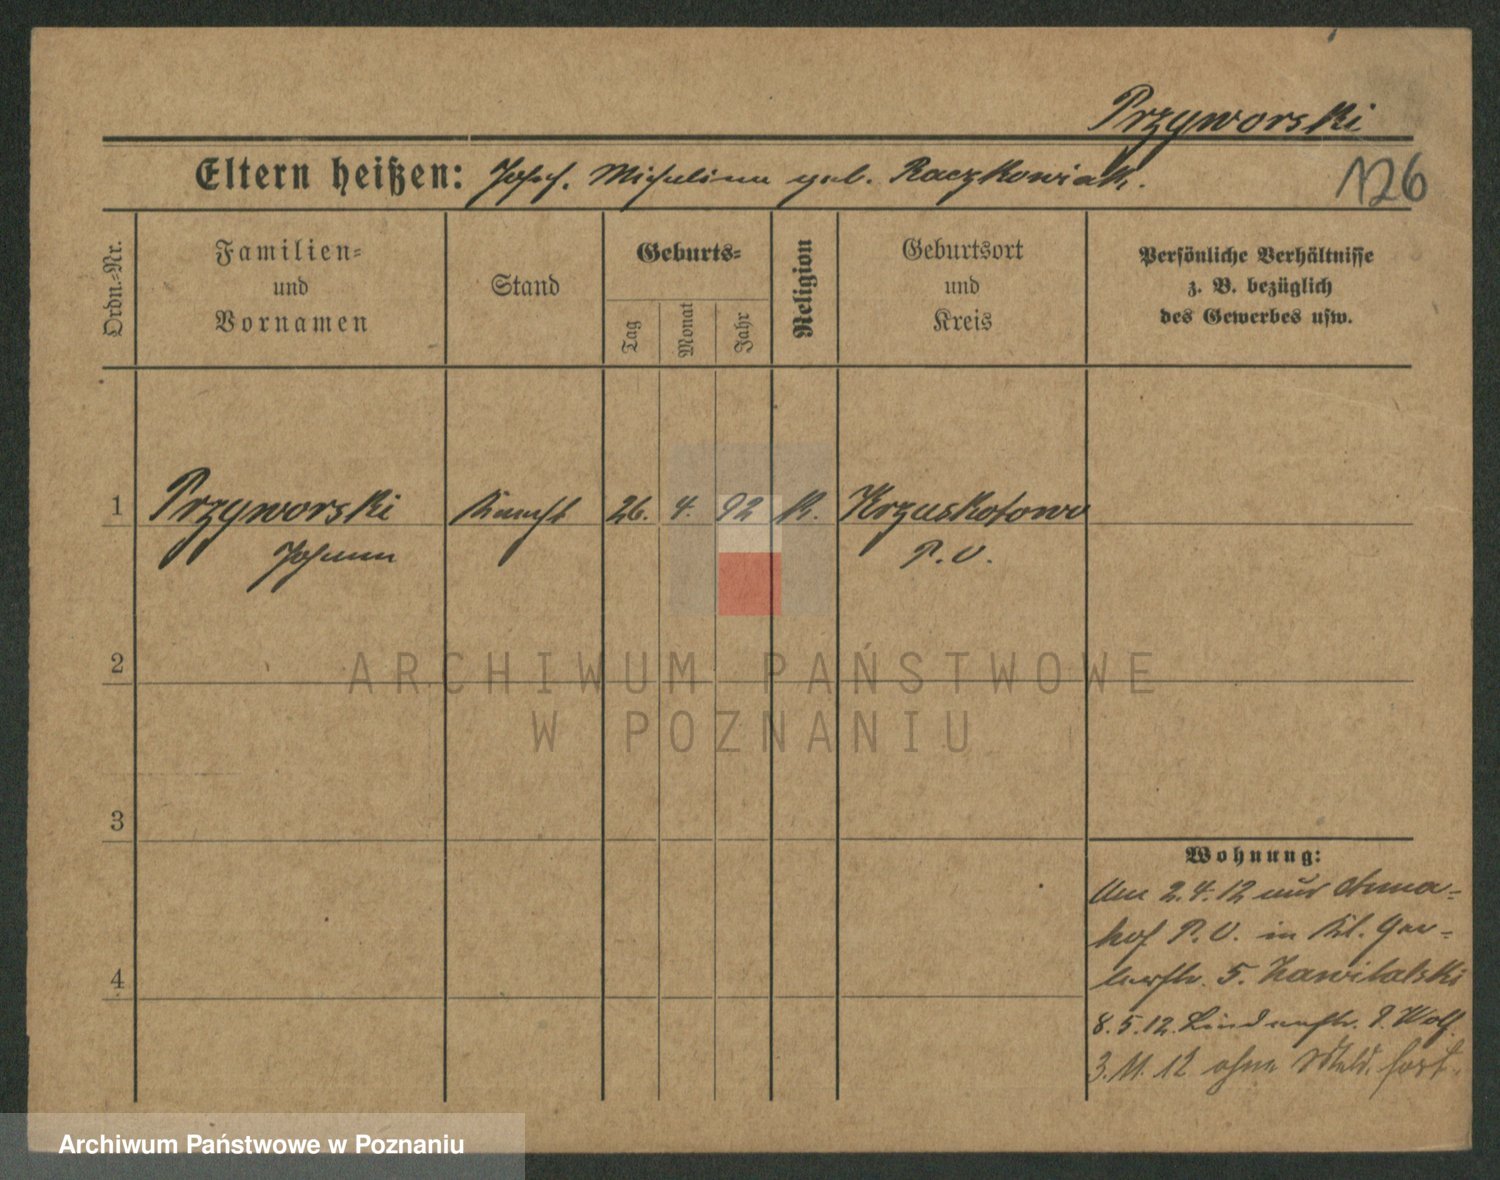 Przyworski
Eltern heißen: Josef. Michalina geb. Raczkowiak.
126
Ordn.-Nr.
Familien-
und
Vornamen
Stand
Geburts-
Tag
Monat
Jahr
Religion
Geburtsort
und
Kreis
Persönliche Verhältnisse
z. B. bezüglich
des Gewerbes usw.
1 Przyworski Knecht 26. 4. 92 K. Krzuskotowo
Johann P. O.
2
ARCHIWUM PAŃSTWOWE
W POZNANIU
3
Wohnung:
Am 2.4.12 aus Anna-
hof P. O. in Kl. Ger-
berstr. 5. Kawitalski
4
8.5.12. Lindenstr. 9. Wolf.
3.11.12 ohne Meld. fort.
Archiwum Państwowe w Poznaniu